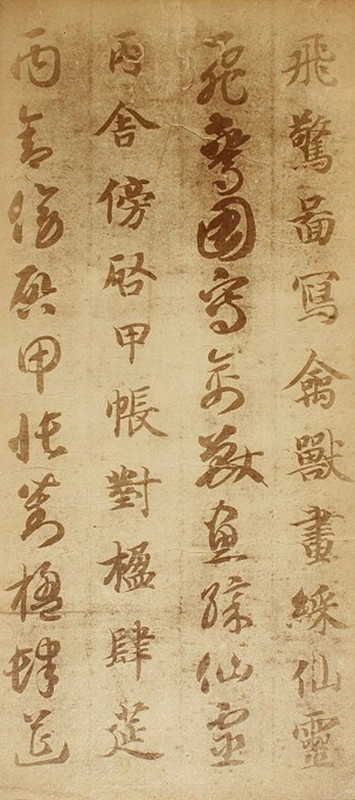 飛驚啚寫禽獸畫綵仙靈
飛驚圖寫禽獸畫綵仙靈
丙舍傍啓甲帳對楹肆莚
丙舍傍啓甲帳對楹肆筵